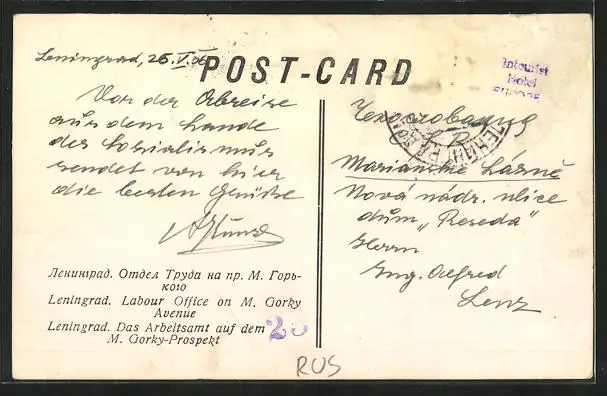 Leningrad, 26.V.
POST-CARD
Intourist
Hotel
EUROPE
Vor der Abreise
aus dem Lande
des Sozialismus
sendet von hier
die besten Grüße
Чехословакия
Č.S.R.
ЛЕНИНГРАД
Marianské Lázně
Nová nádr. ulice
dům „Reseda"
Herrn
Ing. Alfred
Lenz
Ленинград. Отдел Труда на пр. М. Горь-
кого
Leningrad. Labour Office on M. Gorky
Avenue
Leningrad. Das Arbeitsamt auf dem
M. Gorky-Prospekt
20
RUS